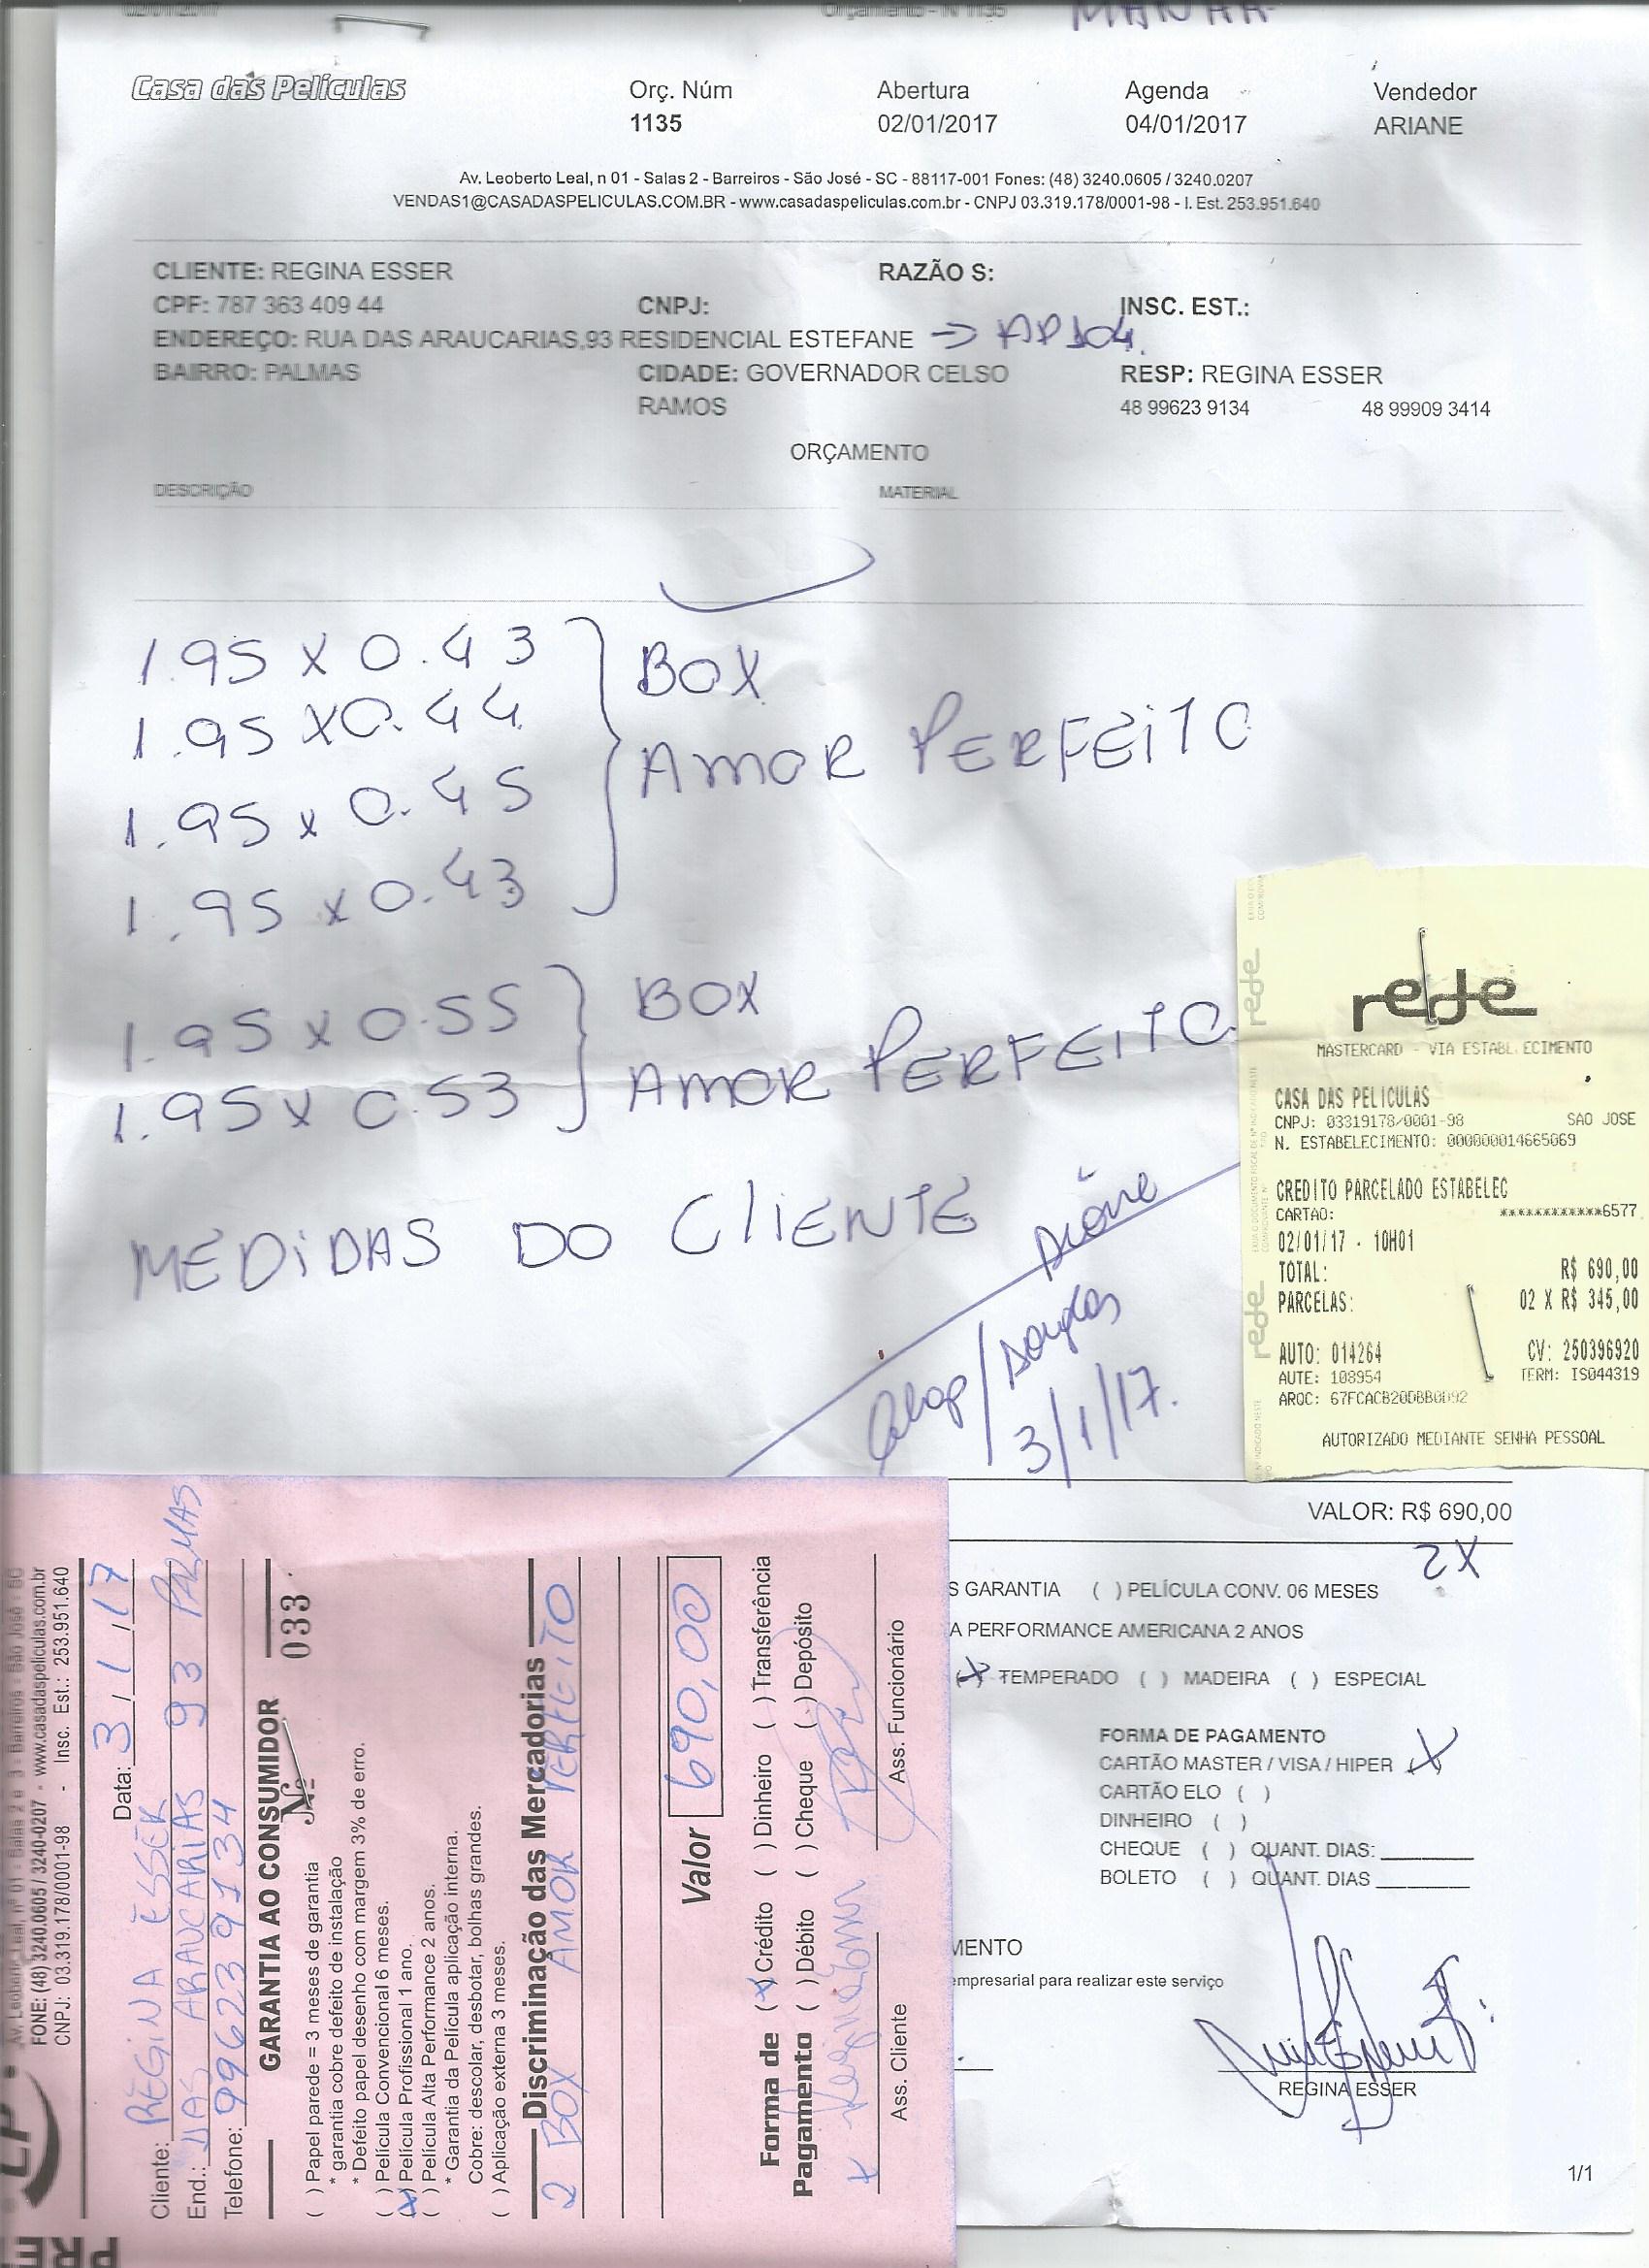 02/01/2017 Orçamento - N 1135 MANHÃ
Casa das Películas
Orç. Núm Abertura Agenda Vendedor
1135 02/01/2017 04/01/2017 ARIANE
Av. Leoberto Leal, n 01 - Salas 2 - Barreiros - São José - SC - 88117-001 Fones: (48) 3240.0605 / 3240.0207
VENDAS1@CASADASPELICULAS.COM.BR - www.casadaspeliculas.com.br - CNPJ 03.319.178/0001-98 - I. Est. 253.951.640
CLIENTE: REGINA ESSER RAZÃO S:
CPF: 787 363 409 44 CNPJ: INSC. EST.:
ENDEREÇO: RUA DAS ARAUCARIAS,93 RESIDENCIAL ESTEFANE → AP 104.
BAIRRO: PALMAS CIDADE: GOVERNADOR CELSO RESP: REGINA ESSER
RAMOS 48 99623 9134 48 99909 3414
ORÇAMENTO
DESCRIÇÃO MATERIAL
1.95 X 0.43
1.95 X 0.44
1.95 x 0.45
1.95 x 0.43
BOX
AMOR PERFEITO
1.95 x 0.55
1.95 x 0.53
BOX
AMOR PERFEITO
MEDIDAS DO CLIENTE
3/1/17.
rede
MASTERCARD - VIA ESTABELECIMENTO
CASA DAS PELICULAS
CNPJ: 03319178/0001-98 SAO JOSE
N. ESTABELECIMENTO: 000000014665069
CREDITO PARCELADO ESTABELEC
CARTAO: ************6577
02/01/17 - 10H01
TOTAL: R$ 690,00
PARCELAS: 02 X R$ 345,00
AUTO: 014264 CV: 250396920
AUTE: 108954 TERM: IS044319
ARQC: 67FCACB20DBB0D92
AUTORIZADO MEDIANTE SENHA PESSOAL
VALOR: R$ 690,00
2X
S GARANTIA ( ) PELÍCULA CONV. 06 MESES
A PERFORMANCE AMERICANA 2 ANOS
(X) TEMPERADO ( ) MADEIRA ( ) ESPECIAL
FORMA DE PAGAMENTO
CARTÃO MASTER / VISA / HIPER X
CARTÃO ELO ( )
DINHEIRO ( )
CHEQUE ( ) QUANT. DIAS:
BOLETO ( ) QUANT. DIAS
MENTO
empresarial para realizar este serviço
REGINA ESSER
1/1
Av. Leoberto Leal, nº 01 - Salas 2 e 3 - Barreiros - São José - SC
FONE: (48) 3240.0605 / 3240-0207 - www.casadaspeliculas.com.br
CNPJ: 03.319.178/0001-98 - Insc. Est.: 253.951.640
Data: 3/1/17
Cliente: REGINA ESSER
End.: DAS ARAUCARIAS 93 PALMAS
Telefone: 996239134
GARANTIA AO CONSUMIDOR
Nº 033
( ) Papel parede = 3 meses de garantia
* garantia cobre defeito de instalação
* Defeito papel desenho com margem 3% de erro.
( ) Película Convencional 6 meses.
(X) Película Profissional 1 ano.
( ) Película Alta Performance 2 anos.
* Garantia da Película aplicação interna.
Cobre: descolar, desbotar, bolhas grandes.
( ) Aplicação externa 3 meses.
Discriminação das Mercadorias
2 BOX AMOR PERFEITO
Valor 690,00
Forma de Pagamento
(X) Crédito ( ) Dinheiro ( ) Transferência
( ) Débito ( ) Cheque ( ) Depósito
Ass. Cliente Ass. Funcionário